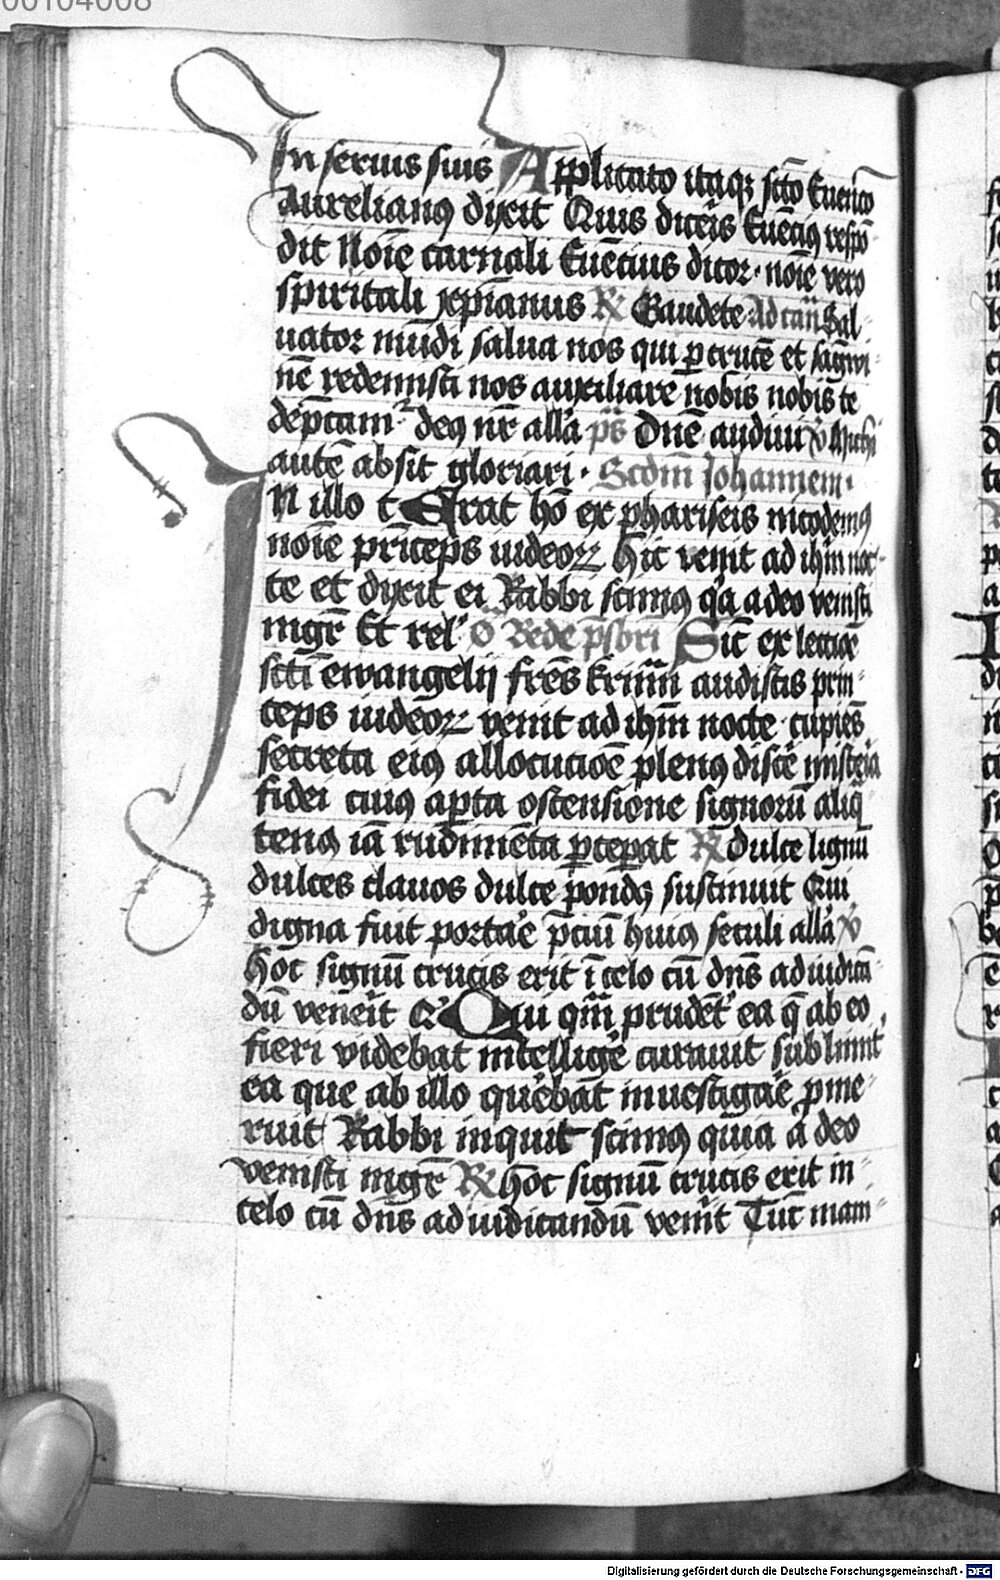 00104008
In seruis suis Applicato itaqꝫ scō Euencō
Aurelianꝯ dixit Quis diceris Euēciꝯ respō
dit Noīe carnali Euēcius dicor · noīe vero
spiritali xp̄ianus ℟ Gaudete Ad can̄ Sal-
uator mūdi salua nos qui ꝑ crucē et sāgwi-
nē redemisti nos auxiliare nobis nobis te
dep̄cam᷑ deꝯ nr̄ all̓a p̄s Dnē audiui ℣ Michi
autē absit gloriari · Scdm̄ Johannem ·
In illo t̄ Erat hō ex phariseis nicodemꝯ
noīe prīceps iudeoꝝ hic venit ad ihm̄ noc-
te et dixit ei Rabbi scimꝯ q̓a a deo venisti
mgr̄ Et rel̓ Ō Bede p̄sbri Sic̄ ex lectiōe
scti ewangelij fr̄es kr̄imi audistis prin-
ceps iudeoꝝ venit ad ihm̄ nocte · cupiēs
secreta eiꝯ allocucioē plenꝯ discē misteria
fidei cuiꝯ aꝑta ostensione signorū aliq̄
tenꝯ iā rudimēta ꝑceꝑat ℟ Dulce lignū
dulces clauos dulce pondꝯ sustinuit Que
digna fuit portar̄e p̄ciū huiꝯ seculi all̓a ℣
hoc signū crucis erit ī celo cū dn̄s ad iudicā-
dū venerit Q̓ Qui qm̄ prudēt̓ ea q̄ ab eo
fieri videbat intelligē̓ curauit sublimit̓
ea que ab illo querebāt̓ inuestigar̄e ꝓme-
ruit Rabbi inquit scimꝯ quia a deo
venisti mgr̄ ℟ hoc signū crucis erit in-
celo cū dn̄s ad iudicandū venīt Tūc mam-
Digitalisierung gefördert durch die Deutsche Forschungsgemeinschaft - DFG